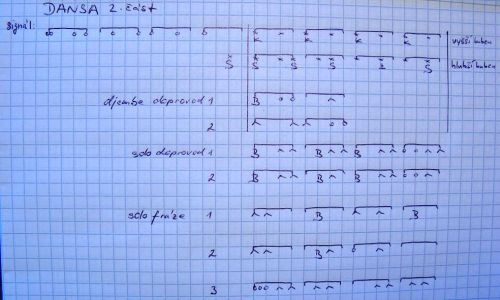 DANSA 2. část
Signál: K K K K vyšší buben
Š Š Š Š Š Š hlubší buben
djembe doprovod 1 B
2
solo doprovod 1 B B B
2 B B B
solo fráze 1 B B
2 B
3